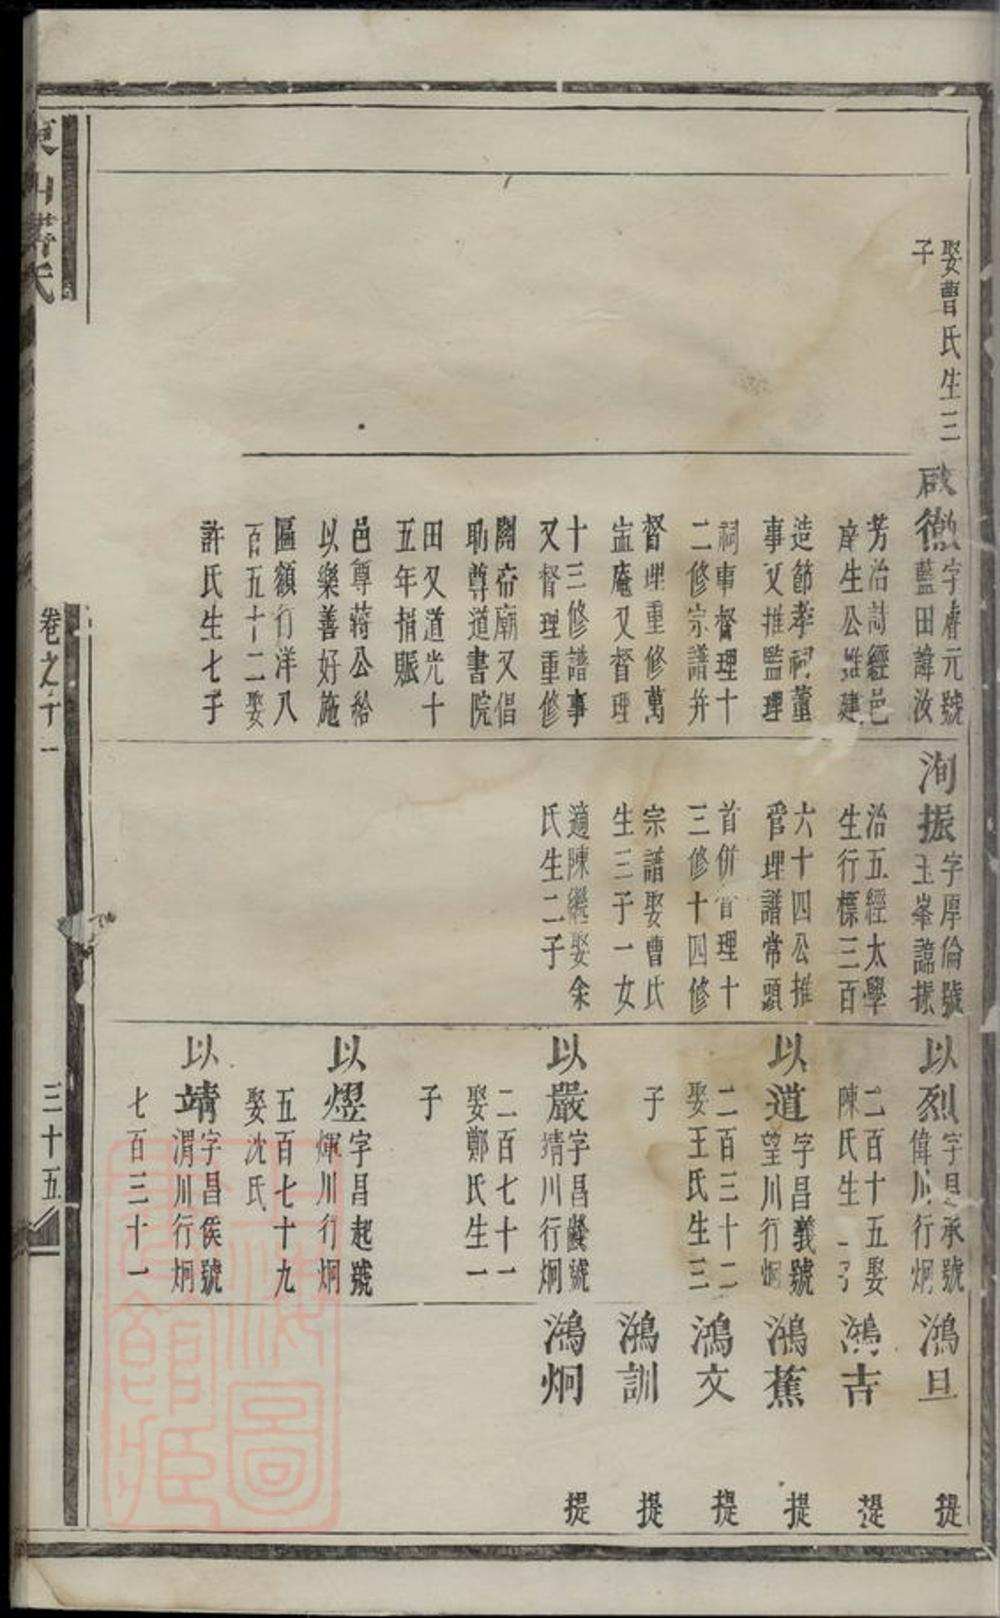 娶曹氏生三
子
啟㣲字睿元號
藍田諱汝
芳治詩經邑
庠生公推建
造節孝祠董
事又推監理
祠事督理十
二修宗譜并
督理重修萬
𥁞庵又督理
十三修譜事
又督理重修
關帝廟又倡
助尊道書院
田又道光十
五年捐賑
邑尊蔣公給
以樂善好施
區額行洋八
百五十二娶
許氏生七子
洵振字厚倫號
玉峯諱振
治五經太學
生行標三百
六十四公推
管理譜常頭
首併管理十
三修十四修
宗譜娶曹氏
生三子一女
適陳繼娶余
氏生二子
以烈字昌承號
偉川行炯
二百十五娶
陳氏生二子
以道字昌義號
望川行炯
二百三十二
娶王氏生三
子
以嚴字昌齡號
靖川行炯
二百七十一
娶鄭氏生一
子
以熤字昌起號
煇川行炯
五百七十九
娶沈氏
以靖字昌侯號
渭川行炯
七百三十一
鴻旦 提
鴻吉 提
鴻蕉 提
鴻文 提
鴻訓 提
鴻炯 提
氏
卷之十一
三十五
上海圖書館藏